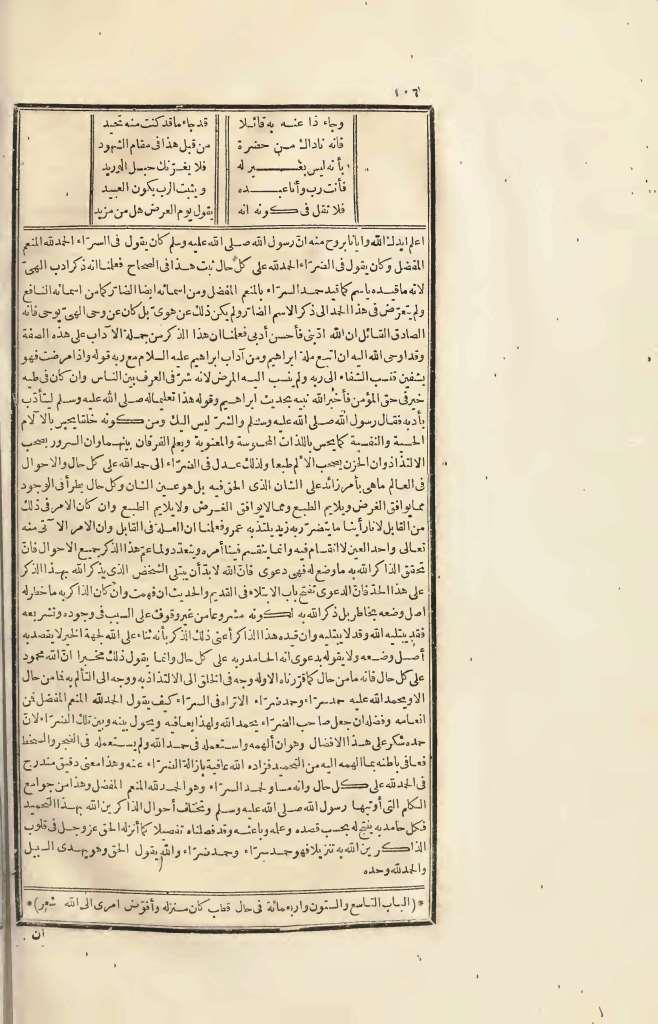 ١٠٦
وجاء ذا عنه به قائلا قد جاء ما قد كنت منه تحيد
فانه ناداك من حضرة من قبل هذا في مقام الشهود
بأنه ليس بغير له فلا يغرنك حبل الوريد
فأنت رب وأنا عبده ويثبت الرب بكون العبيد
فلا تقل في كونه انه يقول يوم العرض هل من مزيد
اعلم ايدك الله وايانا بروح منه ان رسول الله صلى الله عليه وسلم كان يقول في السراء الحمد لله المنعم
المفضل وكان يقول في الضراء الحمد لله على كل حال ثبت هذا في الصحاح فعلمنا انه ذكر ادب الهي
لانه ما قيده باسم كما قيد حمد السراء بالمنعم المفضل ومن اسمائه ايضا الضار كما من اسمائه النافع
ولم يتعرض في هذا الحمد الى ذكر الاسم الضار ولم يكن ذلك عن هوى بل كان عن وحي الهي يوحى فانه
الصادق القائل ان الله ادبني فأحسن أدبي فعلمنا ان هذا الذكر من جملة الآداب على هذه الصفة
وقد اوحى الله اليه ان اتبع ملة ابراهيم ومن آداب ابراهيم عليه السلام مع ربه قوله واذا مرضت فهو
يشفين فنسب الشفاء الى ربه ولم ينسب اليه المرض لانه شر في العرف بين الناس وان كان في طيه
خير في حق المؤمن فأخبر الله نبيه بحديث ابراهيم وقوله هذا تعليما له صلى الله عليه وسلم ليتأدب
بأدبه فقال رسول الله صلى الله عليه وسلم والشر ليس اليك ومن كونه خلقا يحير بالآلام
الحسية والنفسية كما يحس باللذات المحسوسة والمعنوية ويعلم الفرقان بينهما وان السرور يصحب
الالتذاذ وان الحزن يصحب الألم طبعا ولذلك عدل في الضراء الى حمد الله على كل حال والاحوال
في العالم ما هي بأمر زائد على الشان الذي الحق فيه بل هو عين الشان وكل حال يطرأ في الوجود
مما يوافق الغرض ويلايم الطبع ومما لا يوافق الغرض ولا يلايم الطبع وان كان الامر في ذلك
من القابل لانا رأينا ما يتضرر به زيد يلتذ به عمرو فعلمنا ان العلة في القابل وان الامر الآتي منه
تعالى واحد العين لا انقسام فيه وانما ينقسم فينا أمره ويتعدد ولما عم هذا الذكر جميع الاحوال فان
تحقق الذاكر الله به ما وضع له فهي دعوى فان الله لا بد أن يبتلي الشخص الذي يذكر الله بهذا الذكر
على هذا الحد فان الدعوى تفتح باب الابتلاء في القديم والحديث ان فهمت وان كان الذاكر به ما خطر له
اصل وضعه بخاطر بل ذكر الله به لكونه مشروعا من غير وقوف على السبب في وجوده وتشريعه
فقد يبتليه الله وقد لا يبتليه وان قيده هذا الذاكر أعني ذلك الذكر بأنه ثناء على الله لجهة الخير لا يقصد به
أصل وضعه ولا يقوله بدعوى انه الحامد ربه على كل حال وانما يقول ذلك مخبرا ان الله محمود
على كل حال فانه ما من حال كما قررناه الا وله وجه في الخلق الى الالتذاذ به ووجه الى التألم به فما من حال
الا ويحمد الله عليه حمد سراء وحمد ضراء الا تراه في السراء كيف يقول الحمد لله المنعم المفضل فمن
انعامه وفضله ان جعل صاحب الضراء يحمد الله ولهذا يعافيه ويحول بينه وبين تلك الضراء لان
حمده شكر على هذا الافضال وهو ان ألهمه واستعمله في حمد الله ولم يستعمله في الضجر والسخط
فعافي باطنه بما الهمه اليه من التحميد فزاده الله عافية بازالة الضراء عنه وهذا معنى دقيق مندرج
في الحمد لله على كل حال وانه مساو لحمد السراء وهو الحمد لله المنعم المفضل وهذا من جوامع
الكلم التي أوتيها رسول الله صلى الله عليه وسلم وتختلف أحوال الذاكرين الله بهذا التحميد
فكل حامد به ينتج له بحسب قصده وعلمه وباعثه وقد فصلناه تفصيلا كما أنزله الحق عز وجل في قلوب
الذاكرين الله به تنزيلا فهو حمد سراء وحمد ضراء والله يقول الحق وهو يهدي السبيل
والحمد لله وحده
* (الباب التاسع والستون واربعمائة في حال قطب كان منزله وأفوض امري الى الله شعر) *
ان